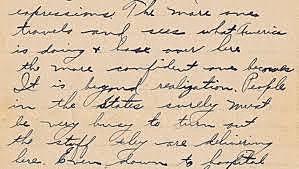 expressions. The more one
travels and sees what America
is doing & has over here
the more confident one becomes
It is beyond realization. People
in the States surely must
be very busy to turn out
the stuff they are delivering
here. Even down to hospital